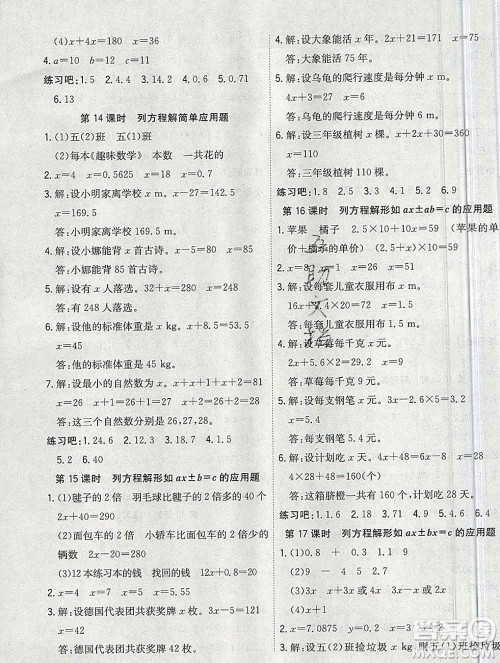 (4)x+4x=180 x=36
4. a=10 a=12
练习吧:1. 5 2. 4 3. 4 4. 6 5. 0.71
6. 13
第 14 课时 列方程解简单应用题
1. (1)五(2)班 五(1)班
(2)每本《趣味数学》 本数 一共花的
2. x=4 x=0.5625 x=31 x=0.3
3. 解:设小明家离学校 x m。 x-27=142.5
x=169.5
答:小明家离学校 169.5 m。
4. 解:设小娜能背 x 首古诗。 x-5=80 x=85
答:小娜能背 85 首古诗。
5. 解:设有 x 人落选。 32+x=280 x=248
答:有 248 人落选。
6. 解:设他的标准体重是 x kg。 x+8.5=53.5
x=45
答:他的标准体重是 45 kg。
7. 解:设最小的自然数是 x。 x+x+1+x+2=
138 x=45 x+1=46 x+2=47
答:这三个自然数分别是 45、46、47。
练习吧:1. 24.6 2. 13 3. 2.4 4. 6.4
5. 2 6. 40
第 15 课时 列方程解形如 ax±b=c 的应用题
1. (1)毽子的 2 倍 羽毛球比毽子的 2 倍多的
2x+40=260
(2)面包车的 2 倍 小轿车比面包车的 2 倍少的
辆数 2x-30=46
(3)12 本练习本的钱 找回的钱 12x+2=20
2. x=4 x=115 x=0.5 x=7
3. 解:设德国代表团共获奖牌 x 枚。
答:德国代表团共获奖牌
4. 解:设大象能活 x 年。 2x+
答:大象能活 75 年。
5. 解:设乌龟的爬行速度是每分钟 x m。
4x+3=27 x=6
答:乌龟的爬行速度是每分钟 6 m。
6. 解:设三年级植树 x 棵。
x=110
答:三年级植树 110 棵。
练习吧:1. 8 2. 5 3. 9
第 16 课时 列方程解形如 ax±ab=c 的应用题
1. 苹果 橘子 2.5×10+10x=59 (苹果的单
2. x=8
3. 解:设每套儿童衣服用布 x m。
答:每套儿童衣服用布
4. 解:设草莓每千克 x 元。
2x+5.6×2=29.2 x=9
答:草莓每千克 9 元。
5. 解:设每支钢笔 x 元。 3x-2×4=28
x=12
答:每支钢笔 12 元。
6. 解:设计划吃 x 天。 4x+4×28=48×4
x=20
4×28+4×20=192(个)
答:这箱脐橙一共有 192 个,计划吃 20 天。
第 17 课时 列方程解形如 ax±bx=c 的应用题
1. (1)0.8 + 0.3 1.9
(2)3x 4x 3x+4x 4x-3x
2. x=7.0875 x=0.2 x=3 x=0.8
3. 解:设五(2)班捡垃圾 x kg,则五(1)班捡垃圾